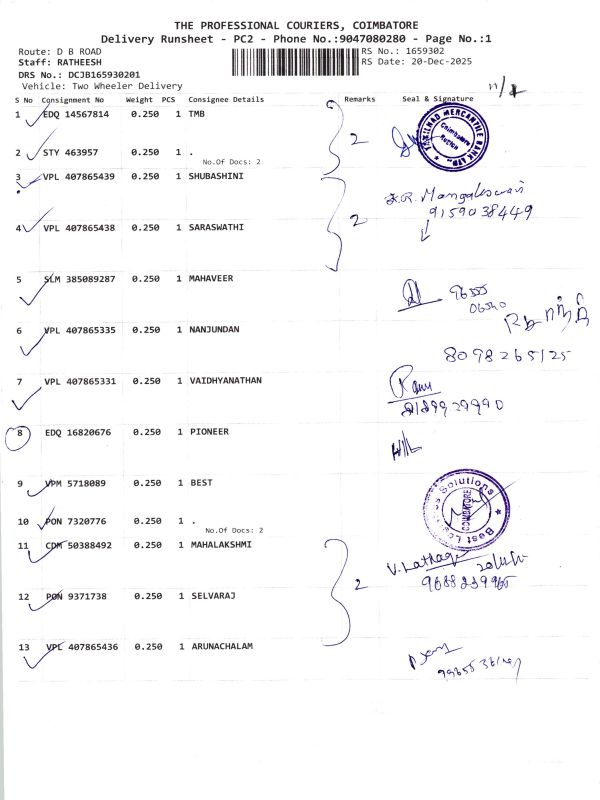 THE PROFESSIONAL COURIERS, COIMBATORE
Delivery Runsheet - PC2 - Phone No.:9047080280 - Page No.:1
Route: D B ROAD RS No.: 1659302
Staff: RATHEESH RS Date: 20-Dec-2025
DRS No.: DCJB165930201
Vehicle: Two Wheeler Delivery
S No Consignment No Weight PCS Consignee Details Remarks Seal & Signature
1 EDQ 14567814 0.250 1 TMB
TAMILNAD MERCANTILE BANK LTD.
Coimbatore
2
2 STY 463957 0.250 1 .
No.Of Docs: 2
3 VPL 407865439 0.250 1 SHUBASHINI
Mangaleswari
9159038449
2
4 VPL 407865438 0.250 1 SARASWATHI
5 SLM 385089287 0.250 1 MAHAVEER
96555
6 VPL 407865335 0.250 1 NANJUNDAN
8098265125
7 VPL 407865331 0.250 1 VAIDHYANATHAN
Ramu
8 EDQ 16820676 0.250 1 PIONEER
9 VPM 5718089 0.250 1 BEST
Solutions
COIMBATORE
Best
10 PON 7320776 0.250 1 .
No.Of Docs: 2
11 CDM 50388492 0.250 1 MAHALAKSHMI
V. Latha
2
12 PON 9371738 0.250 1 SELVARAJ
13 VPL 407865436 0.250 1 ARUNACHALAM